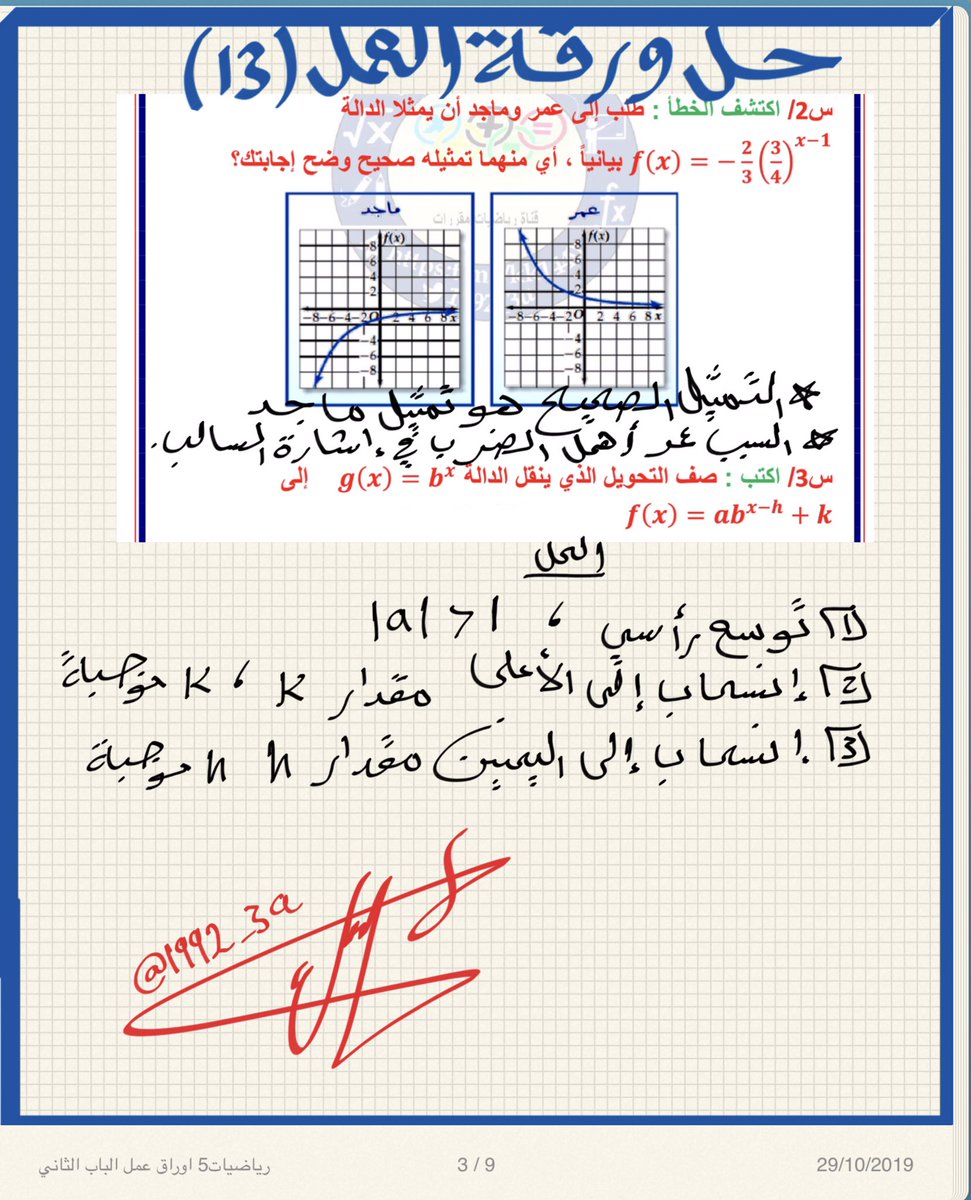 حل ورقة العمل (13)
س2/ اكتشف الخطأ : طلب إلى عمر وماجد أن يمثلا الدالة
f(x) = −2/3 (3/4)^{x−1} بيانياً ، أي منهما تمثيله صحيح وضح إجابتك؟
ماجد
عمر
قناة رياضيات مقررات
f(x)
8
6
4
2
−8−6−4−2O 2 4 6 8x
−4
−6
−8
f(x)
8
6
4
2
−8−6−4−2O 2 4 6 8x
−4
−6
−8
* التمثيل الصحيح هو تمثيل ماجد
* السبب عمر أهمل الضرب في إشارة السالب.
س3/ اكتب : صف التحويل الذي ينقل الدالة g(x) = b^x إلى
f(x) = ab^{x−h} + k
الحل
1 توسع رأسي ، |a| > 1
2 إنسحاب إلى الأعلى مقدار k ، k موجبة
3 إنسحاب إلى اليمين مقدار h h موجبة
@1992_3a
رياضيات5 اوراق عمل الباب الثاني
3 / 9
29/10/2019